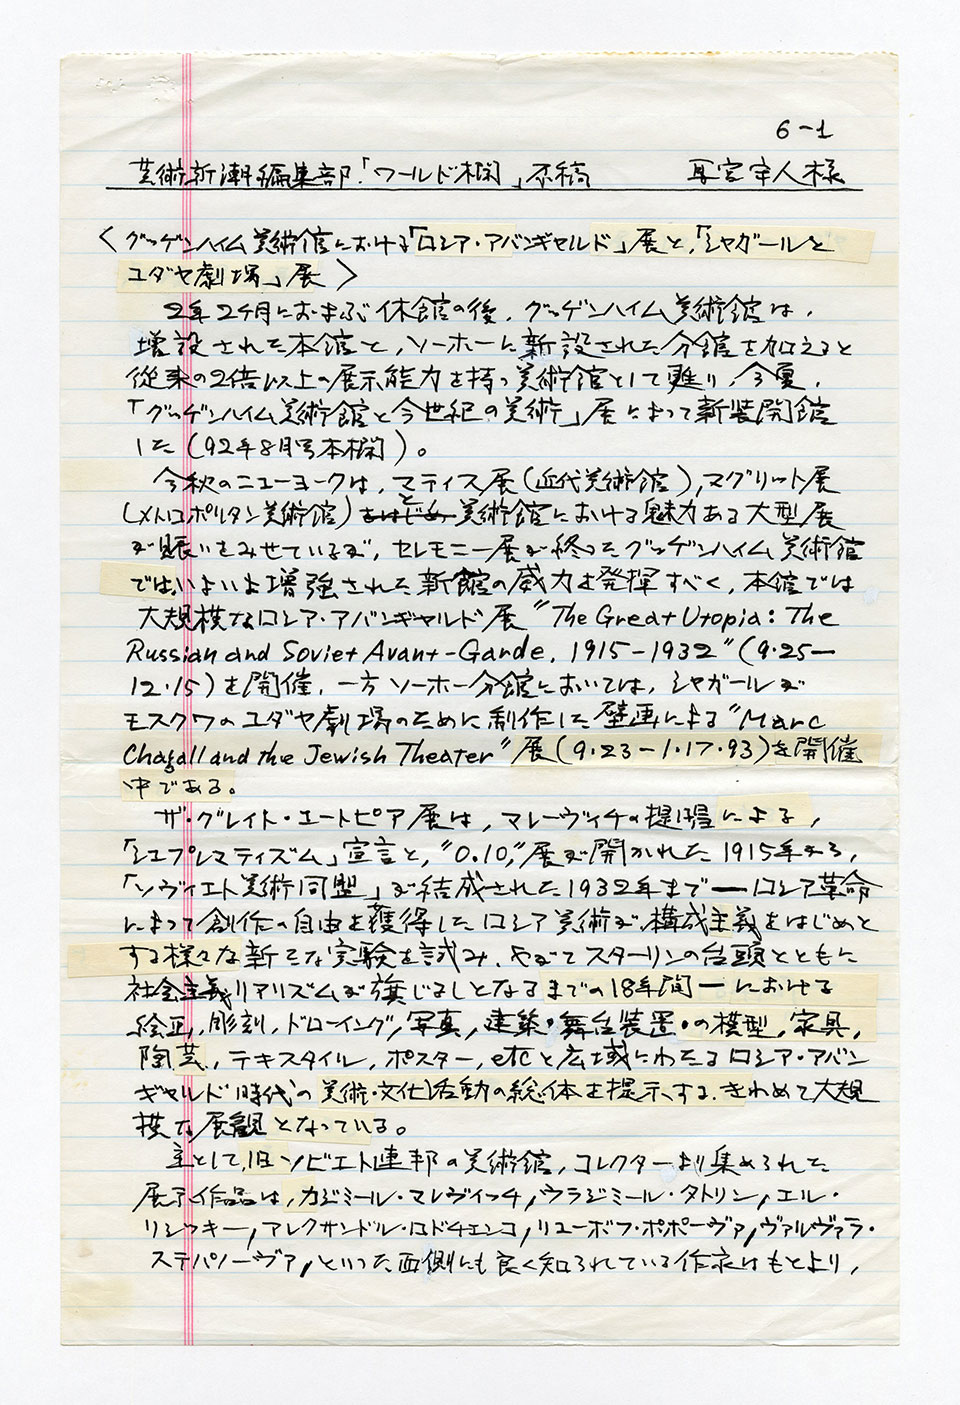 6-1
芸術新潮編集部「ワールド欄」原稿
＜グッゲンハイム美術館における「ロシア・アバンギャルド」展と,「シャガールと
ユダヤ劇場」展＞
2年2ヶ月におよぶ休館の後,グッゲンハイム美術館は,
増設された本館と,ソーホーに新設された分館を加えると
従来の2倍以上の展示能力を持つ美術館として甦り,今夏,
「グッゲンハイム美術館と今世紀の美術」展によって新装開館
した(92年8月号本欄)。
今秋のニューヨークは,マティス展(近代美術館),マグリット展
(メトロポリタン美術館)と美術館における魅力ある大型展
が賑いをみせているが,セレモニー展が終ったグッゲンハイム美術館
では,いよいよ増強された新館の威力を発揮すべく,本館では
大規模なロシア・アバンギャルド展"The Great Utopia: The
Russian and Soviet Avant-Garde, 1915-1932"(9・25—
12・15)を開催,一方ソーホー分館においては,シャガールが
モスクワのユダヤ劇場のために制作した壁画による"Marc
Chagall and the Jewish Theater"展(9・23-1・17・93)を開催
中である。
ザ・グレイト・ユートピア展は,マレーヴィチの提唱による,
「シュプレマティズム」宣言と,"0.10,"展が開かれた1915年から,
「ソヴィエト美術同盟」が結成された1932年まで—ロシア革命
によって創作の自由を獲得したロシア美術が,構成主義をはじめと
する様々な新たな実験を試み,やがてスターリンの台頭とともに
社会主義リアリズムが旗じるしとなるまでの18年間—における
絵画,彫刻,ドローイング,写真,建築・舞台装置・の模型,家具,
陶芸,テキスタイル,ポスター,etcと広域にわたるロシア・アバン
ギャルド時代の美術・文化活動の総体を提示する,きわめて大規
模な展観となっている。
主として,旧ソビエト連邦の美術館,コレクターより集められた
展示作品は,カジミール・マレヴィッチ,ウラジミール・タトリン,エル・
リシツキー,アレクサンドル・ロドチェンコ,リューボフ・ポポーヴァ,ヴァルヴァラ・
ステパノーヴァ,といった西側にも良く知られている作家はもとより,